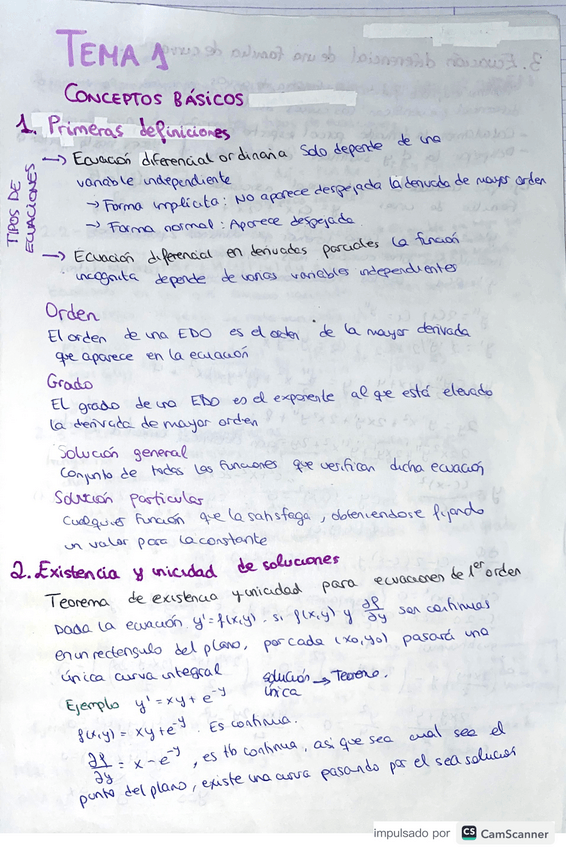 TEMA 1
CONCEPTOS BÁSICOS
1. Primeras definiciones
TIPOS DE ECUACIONES
→ Ecuación diferencial ordinaria Solo depende de una
variable independiente
→ Forma implícita: No aparece despejada la derivada de mayor orden
→ Forma normal: Aparece despejada
→ Ecuación diferencial en derivadas parciales La función
incognita depende de varias variables independientes
Orden
El orden de una EDO es el orden de la mayor derivada
que aparece en la ecuación
Grado
El grado de una EDO es el exponente al que está elevado
la derivada de mayor orden
Solución general
Conjunto de todas las funciones que verifican dicha ecuación
Solución particular
Cualquier función que la satisfaga, obteniendose fijando
un valor para la constante
2. Existencia y unicidad de soluciones
Teorema de existencia y unicidad para ecuaciones de 1er orden
Dada la ecuación y' = f(x,y). si f(x,y) y ∂f/∂y son continuas
en un rectangulo del plano, por cada (x0,y0) pasará una
única curva integral solución única → Teorema.
Ejemplo y' = xy + e^-y
f(x,y) = xy + e^-y. Es continua.
∂f/∂y = x - e^-y, es tb continua, asi que sea cual sea el
punto del plano, existe una curva pasando por el sea solucion
impulsado por CS CamScanner